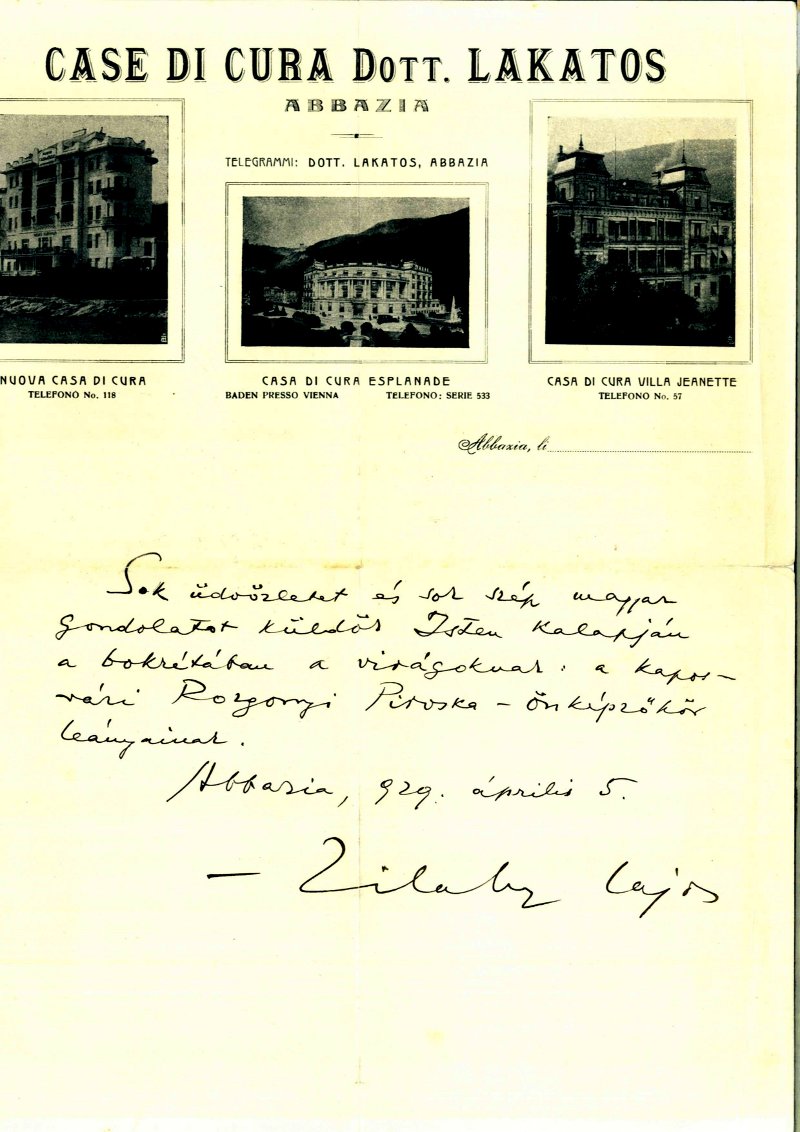 CASE DI CURA DOTT. LAKATOS
ABBAZIA
TELEGRAMMI: DOTT. LAKATOS, ABBAZIA
NUOVA CASA DI CURA
TELEFONO No. 118
CASA DI CURA ESPLANADE
BADEN PRESSO VIENNA TELEFONO: SERIE 533
CASA DI CURA VILLA JEANETTE
TELEFONO No. 57
Abbazia, li
Sok üdvözletet és sok szép magyar
gondolatot küldök Isten kalapján
a bokrétában a virágoknak: a kapos-
vári Rozgonyi Piroska - Önképzőkör
leányainak.
Abbazia, 929. április 5.
— Zilahy Lajos